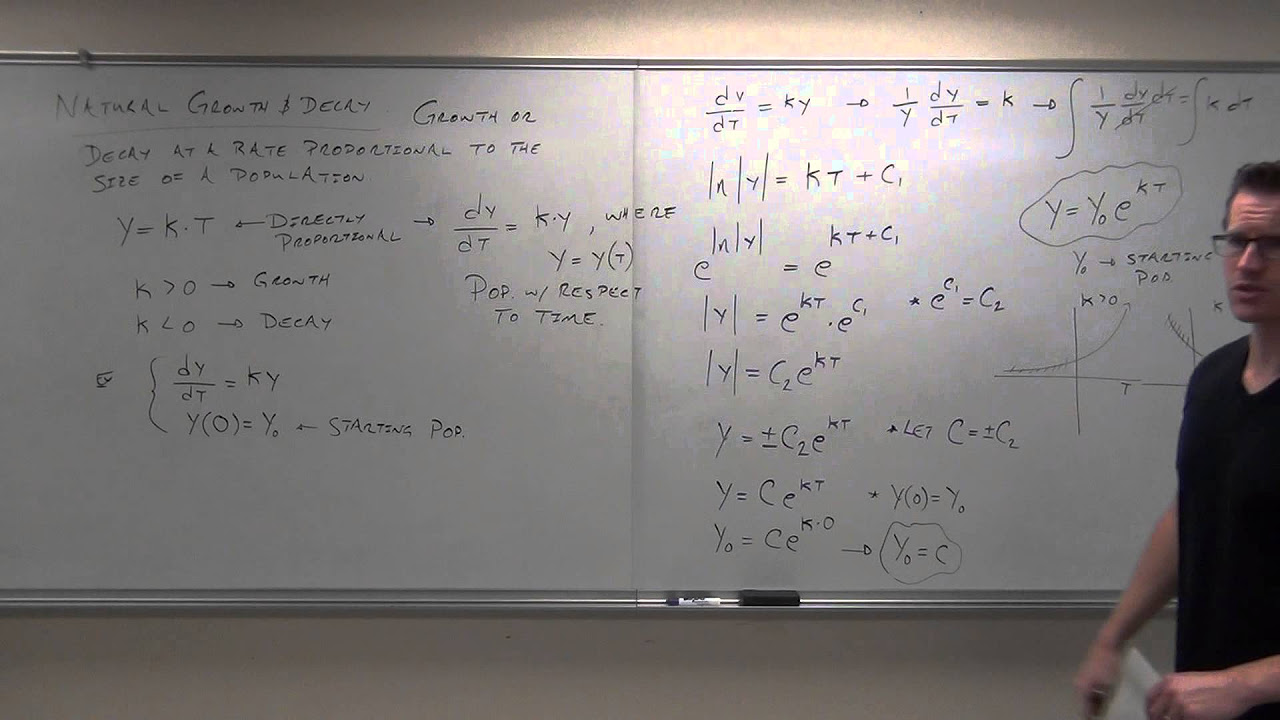 NATURAL GROWTH & DECAY GROWTH OR
DECAY AT A RATE PROPORTIONAL TO THE
SIZE OF A POPULATION
Y = K · T ← DIRECTLY PROPORTIONAL → dy/dT = K·y, WHERE
y = y(T)
POP. W/ RESPECT
TO TIME.
K > 0 → GROWTH
K < 0 → DECAY
EX { dy/dT = Ky
Y(0) = Y₀ ← STARTING POP.
dy/dT = Ky → 1/y dy/dT = K → ∫ 1/y dy/dT dT = ∫ K dT
ln|y| = KT + C₁
e^(ln|y|) = e^(KT+C₁)
|y| = e^(KT) · e^(C₁) * e^(C₁) = C₂
|y| = C₂e^(KT)
y = ±C₂e^(KT) * LET C = ±C₂
y = Ce^(KT) * Y(0) = Y₀
Y₀ = Ce^(K·0) → Y₀ = C
y = Y₀e^(KT)
Y₀ → STARTING
POP.
K > 0
K
T